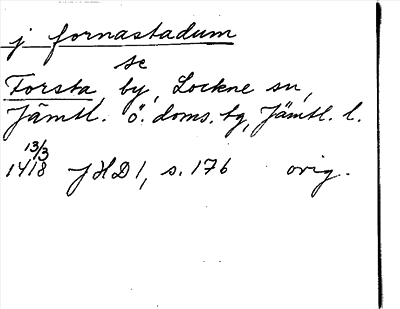 j fornastadum
se
Forsta, by, Lockne sn,
Jämtl. ö. doms. tg, Jämtl. l.
13/3
1418 JHD 1, s. 176 orig.